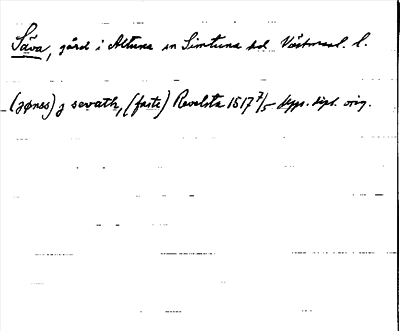 Säva, gård i Altuna sn Simtuna hd Västmanl. l.
(jönss) j sevath, (faste) Revelsta 1517 7/5 Upps. dipl. orig.